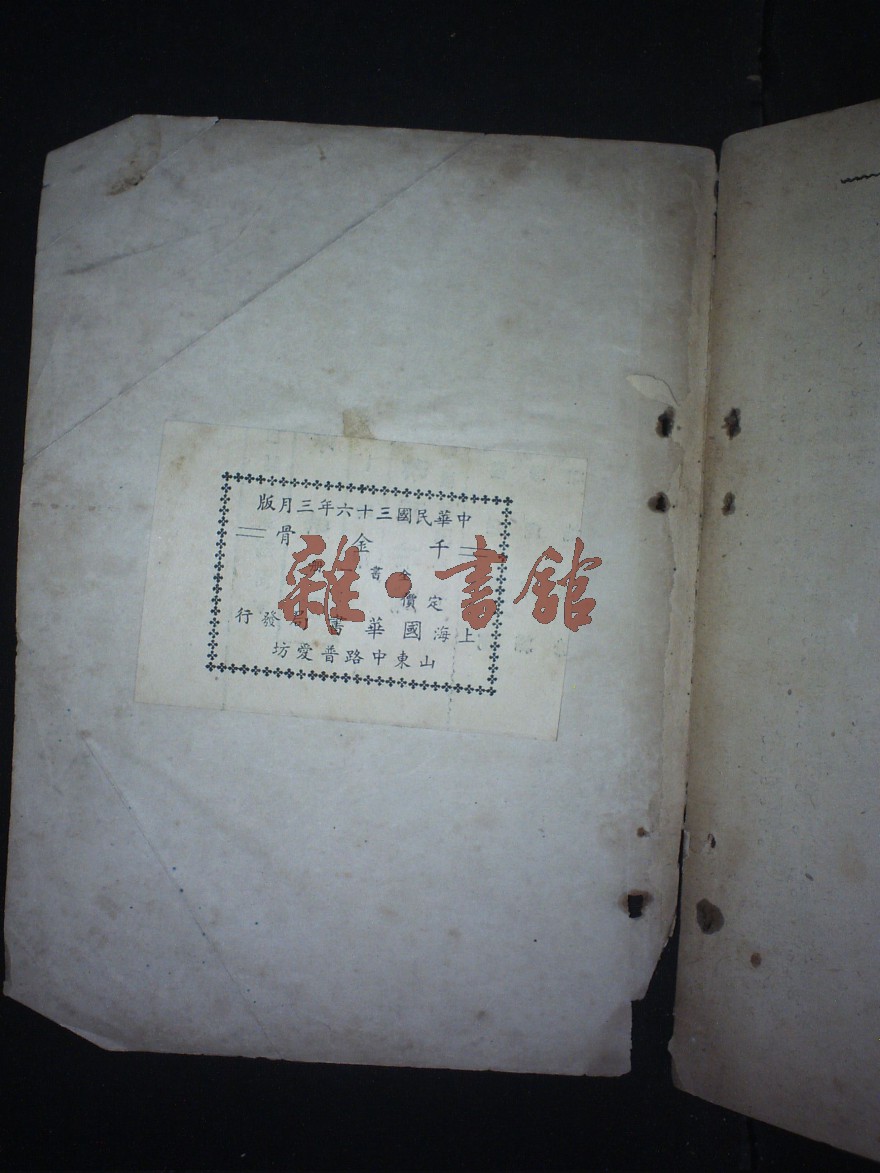 中華民國三十六年三月版
千金骨
全書
定價
上海國華書局發行
山東中路普愛坊
雜·書館